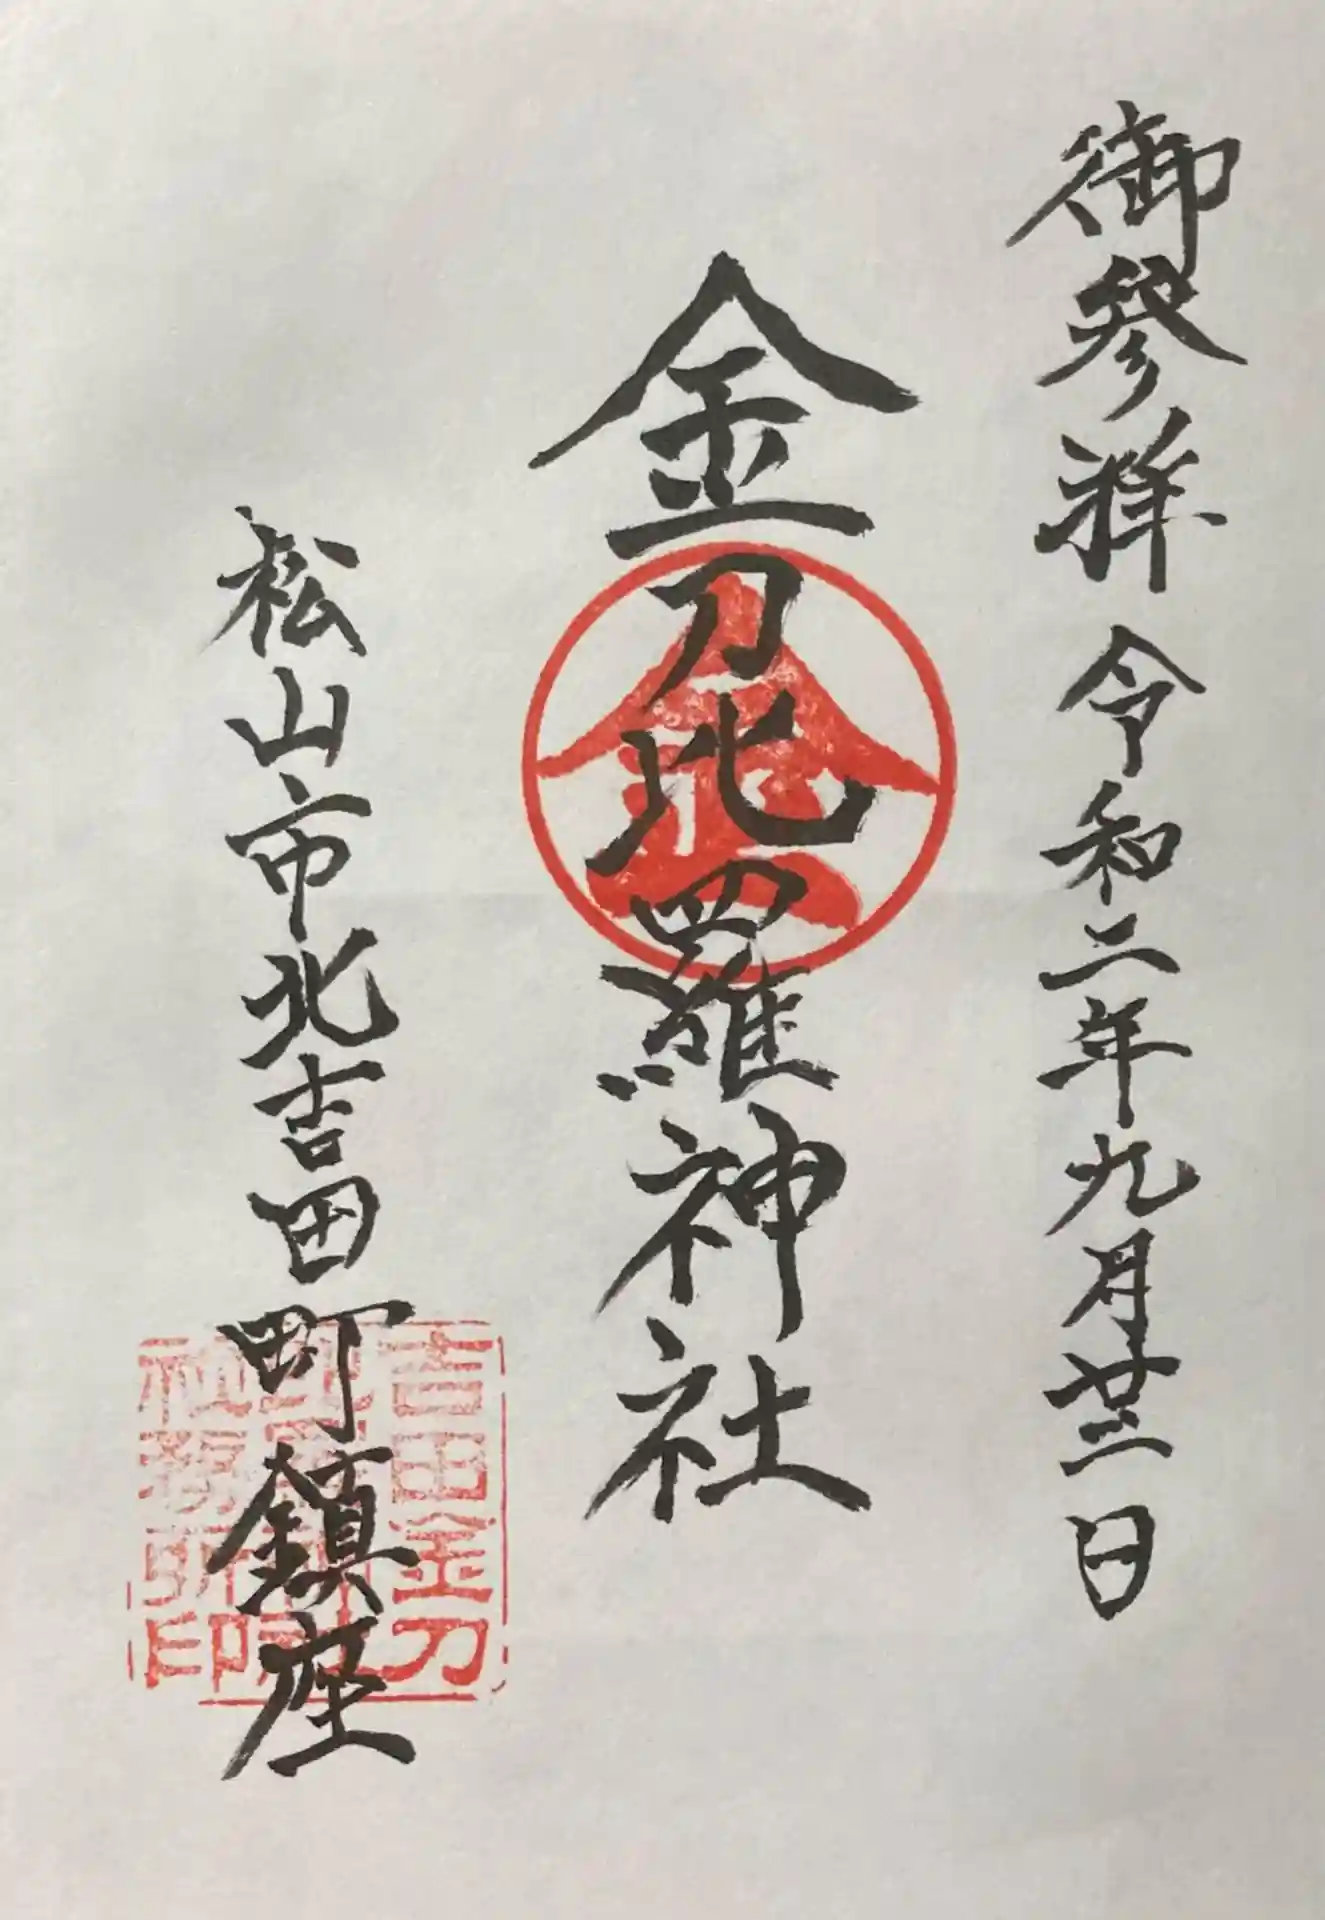 御参拝 令和二年九月廿三日
金刀比羅神社
松山市北吉田町鎮座
吉田金刀
比羅神社
社務所印